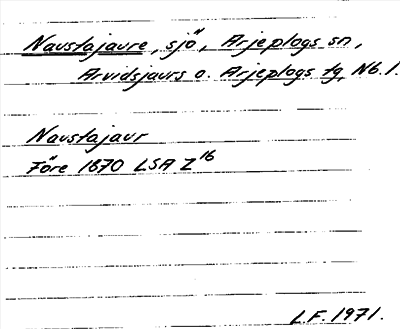 Naustajaure, sjö, Arjeplogs sn,
Arvidsjaurs o. Arjeplogs tg, Nb. l.
Naustajaur
Före 1670 LSA Z16
L.F. 1971.